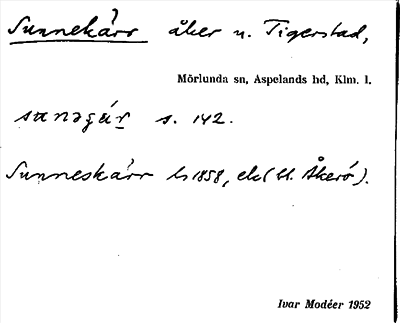 Sunnekärr åker u. Tigerstad,
Mörlunda sn, Aspelands hd, Klm. l.
s. 142.
Sunneskärr ls 1858, ek (bl. Åkerö).
Ivar Modéer 1952